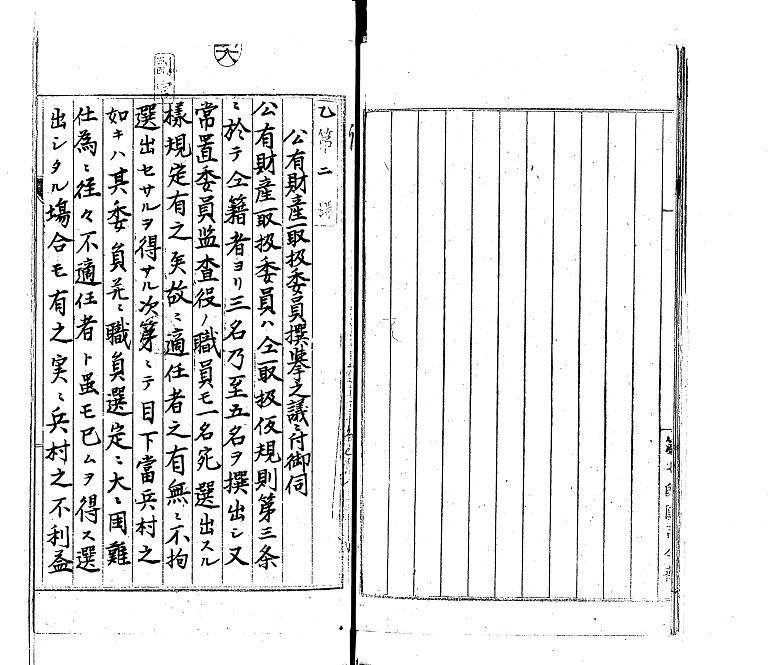 乙第二號
公有財産取扱委員撰挙之議ニ付御伺
公有財産取扱委員ハ仝取扱仮規則第三条
ニ於テ仝籍者ヨリ三名乃至五名ヲ撰出シ又
常置委員監査役ノ職員モ一名宛選出スル
様規定有之矣故ニ適任者之有無ニ不拘
選出セサルヲ得サル次第ニテ目下當兵村之
如キハ其委員並ニ職員選定ニ大ニ困難
仕為ニ往々不適任者ト虽モ已ムヲ得ス選
出シタル塲合モ有之実ニ兵村之不利益